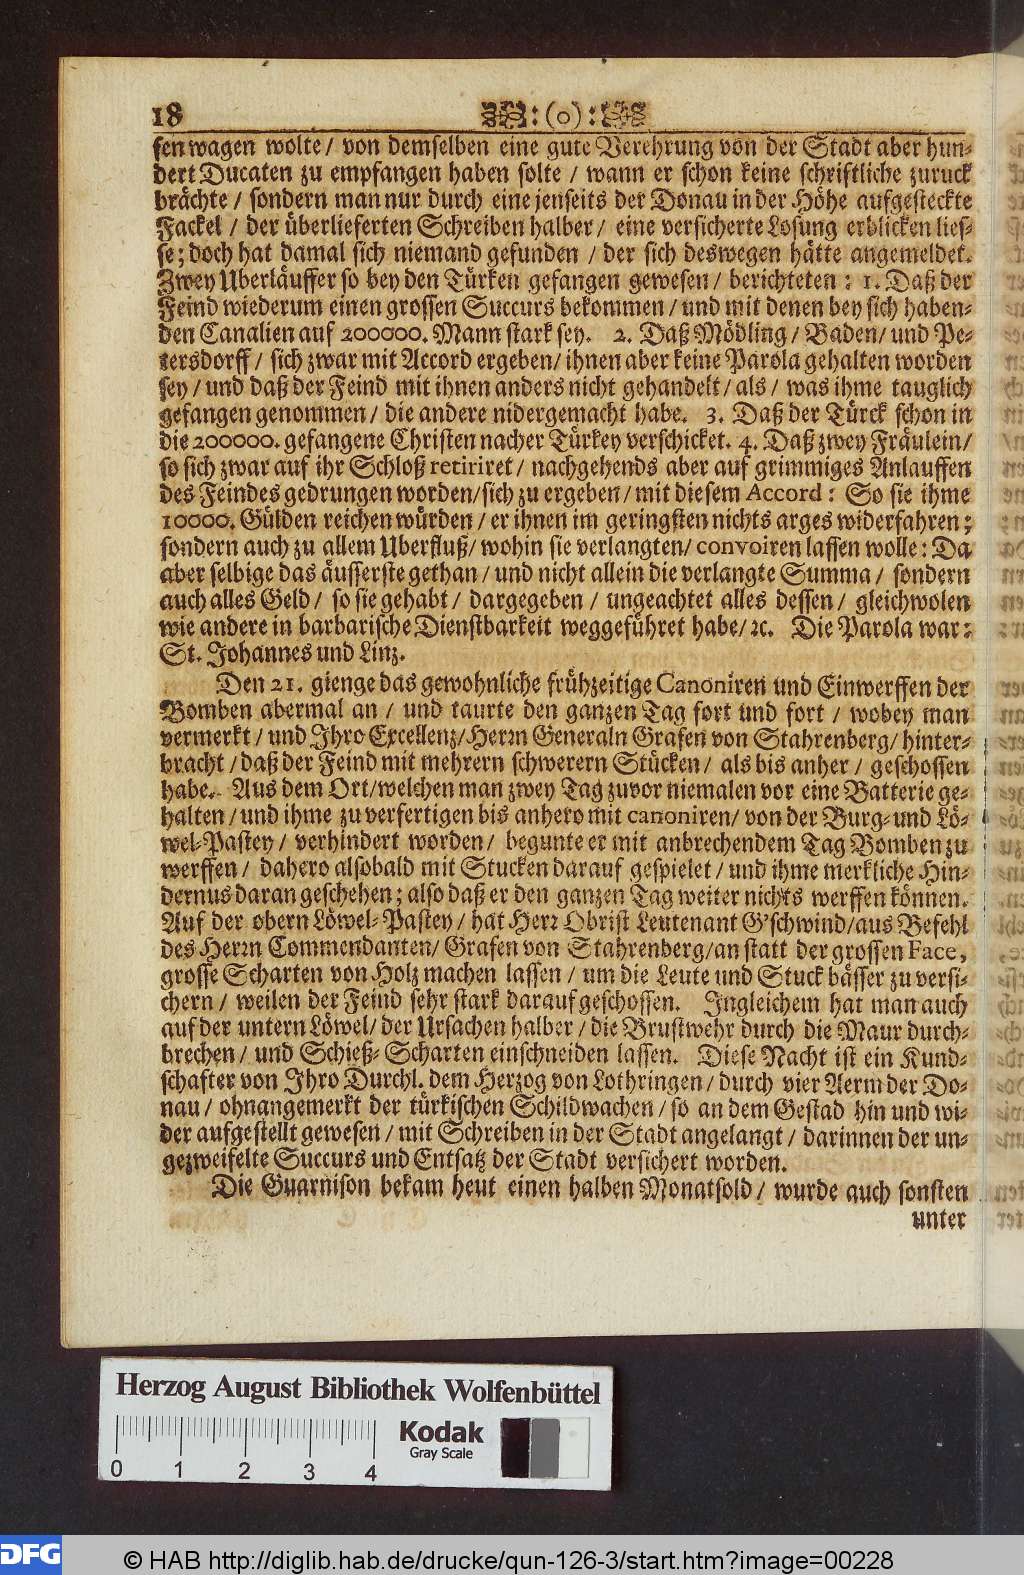 18 :(o):
sen wagen wolte / von demselben eine gute Verehrung von der Stadt aber hun-
dert Ducaten zu empfangen haben solte / wann er schon keine schriftliche zuruck
brächte / sondern man nur durch eine jenseits der Donau in der Höhe aufgesteckte
Fackel / der überlieferten Schreiben halber / eine versicherte Losung erblicken lies-
se; doch hat damal sich niemand gefunden / der sich deswegen hätte angemeldet.
Zwey Uberläuffer so bey den Türken gefangen gewesen / berichteten : 1. Daß der
Feind wiederum einen grossen Succurs bekommen / und mit denen bey sich haben-
den Canalien auf 200000. Mann stark sey. 2. Daß Mödling / Baden / und Pe-
tersdorff / sich zwar mit Accord ergeben / ihnen aber keine Parola gehalten worden
sey / und daß der Feind mit ihnen anders nicht gehandelt / als / was ihme tauglich
gefangen genommen / die andere nidergemacht habe. 3. Daß der Türck schon in
die 200000. gefangene Christen nacher Türkey verschicket. 4. Daß zwey Fräulein /
so sich zwar auf ihr Schloß retiriret / nachgehends aber auf grimmiges Anlauffen
des Feindes gedrungen worden / sich zu ergeben / mit diesem Accord : So sie ihme
10000. Gülden reichen würden / er ihnen im geringsten nichts arges widerfahren;
sondern auch zu allem Uberfluß / wohin sie verlangten / convoiren lassen wolle : Da
aber selbige das äusserste gethan / und nicht allein die verlangte Summa / sondern
auch alles Geld / so sie gehabt / dargegeben / ungeachtet alles dessen / gleichwolen
wie andere in barbarische Dienstbarkeit weggeführet habe / ꝛc. Die Parola war :
St. Johannes und Linz.
Den 21. gienge das gewohnliche frühzeitige Canoniren und Einwerffen der
Bomben abermal an / und taurte den ganzen Tag fort und fort / wobey man
vermerkt / und Ihro Excellenz / Herrn Generaln Grafen von Stahrenberg / hinter-
bracht / daß der Feind mit mehrern schwerern Stücken / als bis anher / geschossen
habe. Aus dem Ort / welchen man zwey Tag zuvor niemalen vor eine Batterie ge-
halten / und ihme zu verfertigen bis anhero mit canoniren / von der Burg- und Lö-
wel-Pastey / verhindert worden / begunte er mit anbrechendem Tag Bomben zu
werffen / dahero alsobald mit Stucken darauf gespielet / und ihme merkliche Hin-
dernus daran geschehen; also daß er den ganzen Tag weiter nichts werffen können.
Auf der obern Löwel-Pastey / hat Herr Obrist Leutenant G'schwind / aus Befehl
des Herrn Commendanten / Grafen von Stahrenberg / an statt der grossen Face,
grosse Scharten von Holz machen lassen / um die Leute und Stuck bässer zu versi-
chern / weilen der Feind sehr stark darauf geschossen. Ingleichem hat man auch
auf der untern Löwel / der Ursachen halber / die Brustwehr durch die Maur durch-
brechen / und Schieß-Scharten einschneiden lassen. Diese Nacht ist ein Kund-
schafter von Ihro Durchl. dem Herzog von Lothringen / durch vier Aerm der Do-
nau / ohnangemerkt der türkischen Schildwachen / so an dem Gestad hin und wi-
der aufgestellt gewesen / mit Schreiben in der Stadt angelangt / darinnen der un-
gezweifelte Succurs und Entsatz der Stadt versichert worden.
Die Guarnison bekam heut einen halben Monatsold / wurde auch sonsten
unter
Herzog August Bibliothek Wolfenbüttel
Kodak
Gray Scale
0 1 2 3 4
DFG © HAB http://diglib.hab.de/drucke/qun-126-3/start.htm?image=00228